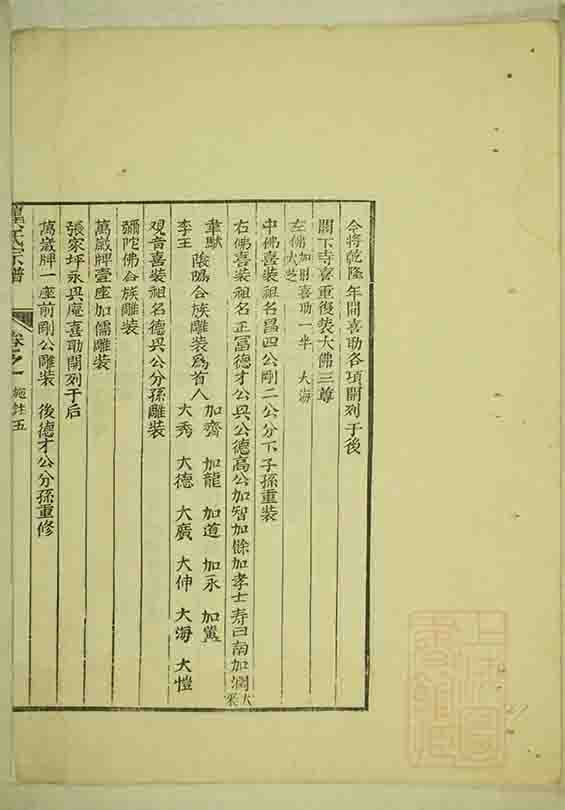 今將乾隆年間喜助各項開列于後
閣下寺喜重復裝大佛三尊
左佛加財喜助一半 大海
大芝
中佛喜裝祖名昌四公剛二公分下子孫重裝
右佛喜裝祖名正冨德才公兴公德高公加智加餘加孝士寿曰南加澜大
韋馱 加齊 加龍 加道 加永 加黨
陰隲合族雕裝為首人
李王 大秀 大德 大廣 大伸 大海 大愷
观音喜裝祖名德兴公分孫雕裝
彌陀佛合族雕裝
萬歲牌壹座加儒雕裝
張家坪永兴庵喜助開列于后
萬歲牌一座前剛公雕裝 後德才公分孫重修
氏宗譜 卷之一 五